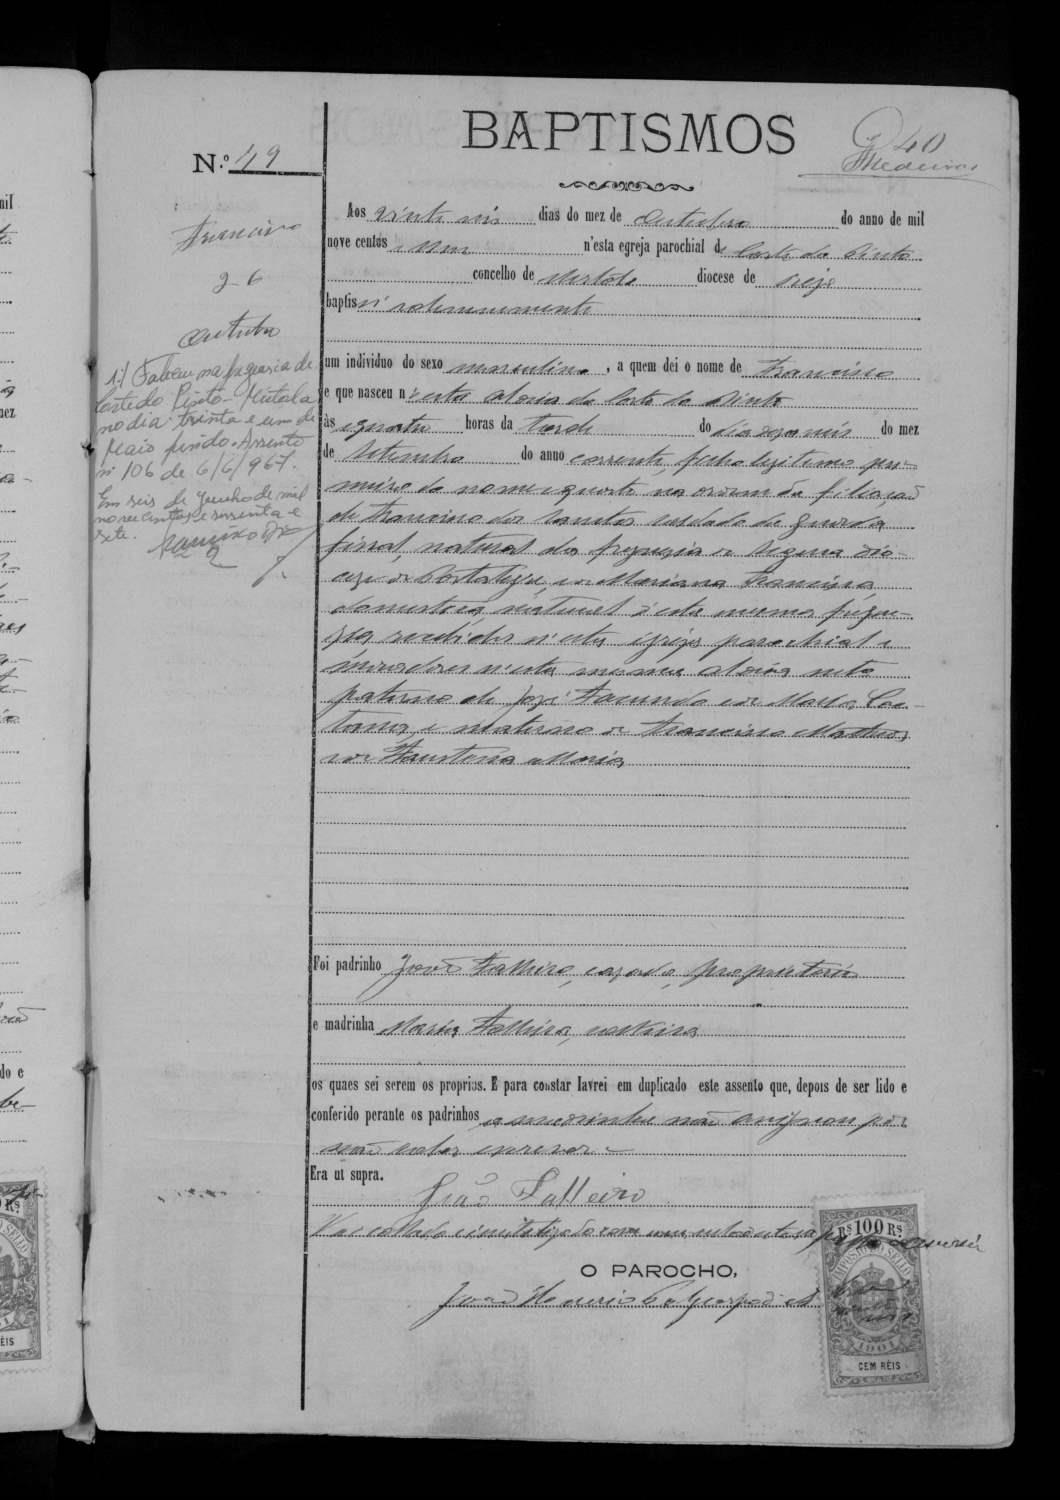 BAPTISMOS
40
Medeiros
N.º 49
Francisco
26
Outubro
1) Faleceu na freguesia de
Corte do Pinto - Mértola
no dia trinta e um de
Maio findo. Assento
nº 106 de 6/6/967.
Em seis de Junho de mil
novecentos e sessenta e
sete.
Aos vinte seis dias do mez de Outubro do anno de mil
nove centos e um n'esta egreja parochial de Corte do Pinto
concelho de Mertola diocese de Beja
baptisei solemnemente
um individuo do sexo masculino, a quem dei o nome de Francisco
e que nasceu n'esta aldeia da Corte do Pinto
às quatro horas da tarde do dia dezaseis do mez
de Setembro do anno corrente, filho legitimo pri-
meiro do nome e quarto na ordem da filiação
de Francisco dos Santos soldado da guarda
fiscal, natural da freguezia de dio-
ceze de Portalegre, e de Marianna Francisca,
domestica, natural d'esta mesma fregue-
zia recebidos n'esta igreja parochial e
moradores n'esta mesma aldeia neto
paterno de José Facundo e de Maria Cae-
tana, e materno de Francisco Matheus
e de Faustina Maria
Foi padrinho João Palheiro, cazado, proprietario
e madrinha Maria Palheira, solteira
os quaes sei serem os proprios. E para constar lavrei em duplicado este assento que, depois de ser lido e
conferido perante os padrinhos a madrinha não assignou por
não saber escrever
Era ut supra.
João Palleiro
Vae collado e inutilizado com um sello da taxa
O PAROCHO,
João
Rs 100 Rs
IMPOSTO DO SELLO
1901
CEM RÉIS